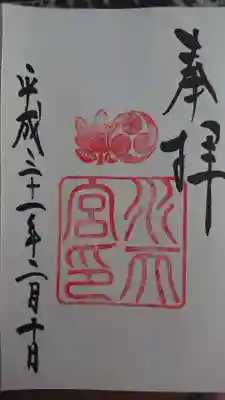 奉拝
水天宮印
平成三十一年二月十日